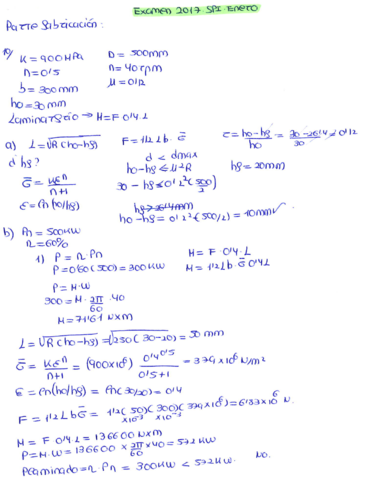 Examen 2017 SPI. Enero
Parte Fabricación:
10)
K = 900 MPa D = 500mm
n = 0'15 n = 40 rpm
b = 300mm μ = 0'12
h0 = 30mm
Laminación → M = F 0'4·L
a) L = √R(h0-hf) F = 1'12 L b · σ̄ ε = h0-hf / h0 = 30-26'4 / 30 = 0'12
d hf? d < dmax
σ̄ = Kε^n / n+1 h0-hf ≤ μ²R hf = 20mm
ε = ln(h0/hf) 30 - hf ≤ 0'2²(500/2)
hf > 26'4mm
h0-hf = 0'2²(500/2) = 10mm ✓
b) Pn = 500KW
η = 60%
1) P = η·Pn M = F · 0'4 · L
P = 0'60(500) = 300KW M = 1'2 L b · σ̄ 0'4 L
P = M·W
300 = M · 2π/60 · 40
M = 71'61 N×m
L = √R(h0-hf) = √250(30-20) = 50 mm
σ̄ = Kε^n / n+1 = (900×10⁶) 0'4^0'15 / 0'15+1 = 379×10⁶ N/m²
ε = ln(h0/hf) = ln(30/20) = 0'4
F = 1'2 L b σ̄ = 1'2 (50)(300)(379×10⁶) = 6'83×10⁶ N.
×10⁻³ ×10⁻³
M = F 0'4 L = 136600 N×m
P = M·W = 136600 × 2π/60 × 40 = 572 KW
Plaminado = η·Pn = 300KW < 572KW. NO.